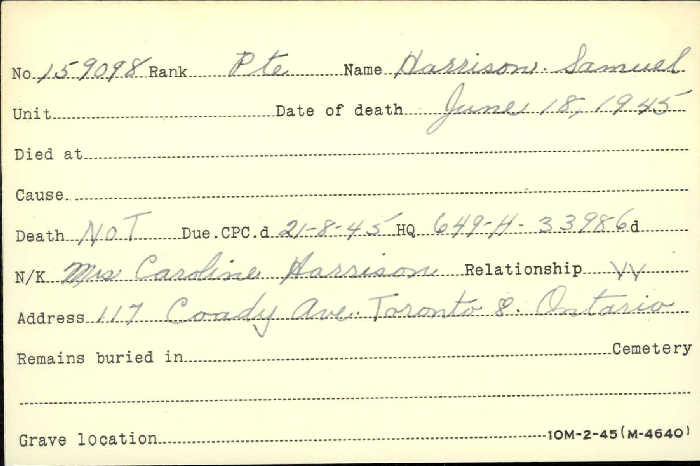 No. 159098 Rank Pte Name Harrison. Samuel
Unit Date of death June 18, 1945
Died at
Cause.
Death NOT Due. CPC.d 21-8-45 HQ 649-H-33986d
N/K Mrs Caroline Harrison Relationship W
Address 117 Coady Ave. Toronto 8. Ontario
Remains buried in Cemetery
Grave location 10M-2-45(M-4640)